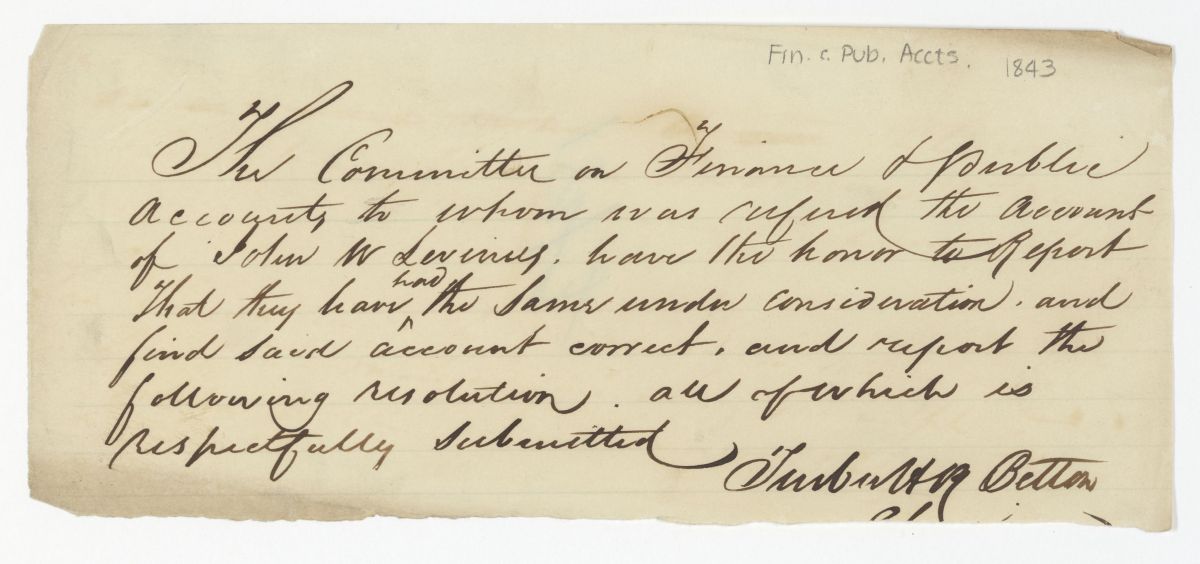 Fin. & Pub. Accts. 1843
The Committee on Finance & public
Accounts to whom was refered the Account
of John W Levinus. have the honor to Report
That they have had the Same under consideration. and
find said account correct. and report the
following resolution. all of which is
respectfully Submitted
Turbutt R Betton